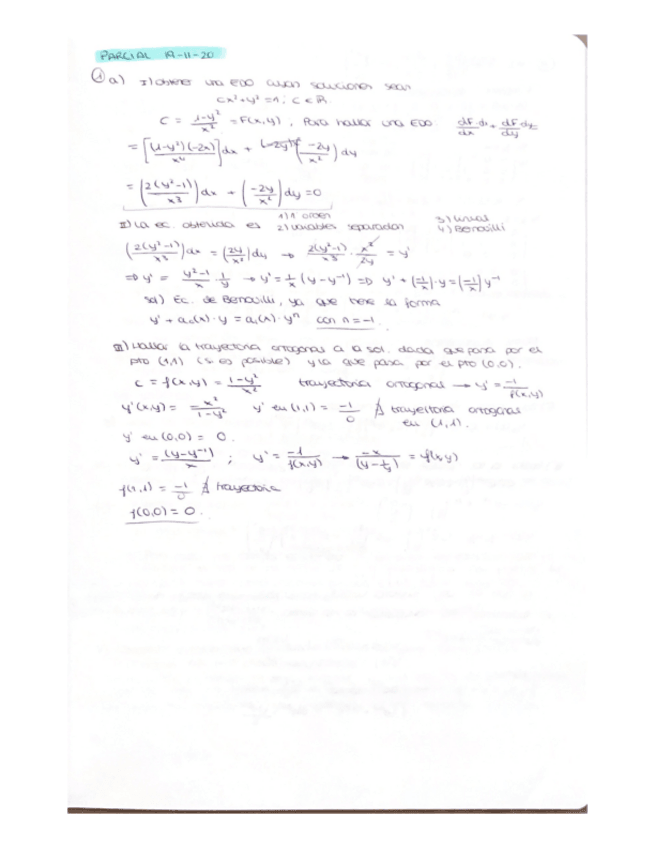 PARCIAL 19-11-20
① a) I) Obtener una EDO cuyas soluciones sean
Cx² + y² = 1; C ∈ ℝ.
C = (1-y²)/x² = F(x,y), Para hallar una EDO dF/dx dx + dF/dy dy =
= [((1-y²)(-2x))/x⁴] dx + (-2y/x²) dy
= (2(y²-1)/x³) dx + (-2y/x²) dy = 0
II) La ec. obtenida es 1) 1 orden 2) variables separadas 3) lineal 4) Bernouilli
(2(y²-1)/x³) dx = (2y/x²) dy → 2(y²-1)/x³ · x²/2y = y'
⇒ y' = (y²-1)/x · 1/y → y' = 1/x (y - y⁻¹) ⇒ y' + (-1/x)·y = (-1/x) y⁻¹
sol) Ec. de Bernouilli, ya que tiene la forma
y' + a₀(x)·y = a₁(x)·yⁿ con n = -1.
III) Hallar la trayectoria ortogonal a la sol. dada que pasa por el
pto (1,1) (si es posible) y la que pasa por el pto (0,0).
C = f(x,y) = (1-y²)/x² trayectoria ortogonal → y' = -1/f(x,y)
y'(x,y) = -x²/(1-y²) y' en (1,1) = -1/0 ∄ trayectoria ortogonal
en (1,1).
y' en (0,0) = 0.
y' = (y-y⁻¹)/x ; y' = -1/f(x,y) → -x/(y-1/y) = f(x,y)
f(1,1) = -1/0 ∄ trayectoria
f(0,0) = 0.